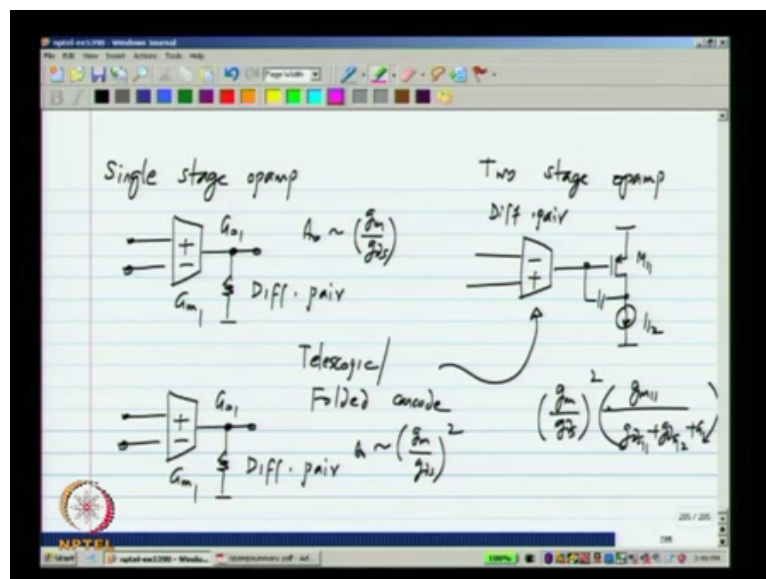 nptel-ee5390 - Windows Journal
File Edit View Insert Actions Tools Help
Page Width
Single stage opamp
Two stage opamp
Diff. pair
Go1
A0 ~ (gm/gds)
+
-
Gm1
Diff. pair
-
+
M11
I12
Telescopic/
Folded cascode
Go1
A ~ (gm/gds)^2
+
-
Gm1
Diff. pair
(gm/gds)^2 (gm11/gds11+gds12+GL)
NPTEL
205 / 205
206
Start
nptel-ee5390 - Windo...
opampsummary.pdf - Ad...
100%
3:46 PM